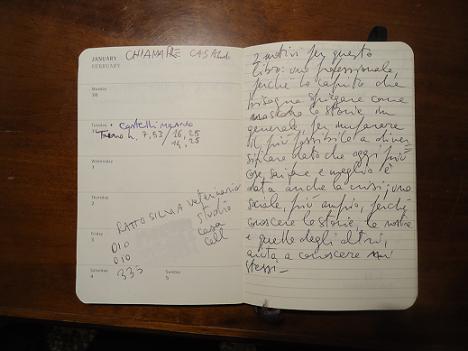 JANUARY
FEBRUARY
CHIAMARE CASA
Monday
30
Tuesday
Castelli
Treno h. 7,53 / 16,25
14,25
Wednesday
1
Thursday
2
RATTO SILVIA veterinaria
studio
Friday
3
010
casa
010
cell
335
Saturday
4
Sunday
5
2 motivi per questo
libro: uno professionale,
perché ho capito che
bisogna spiegare come
nascono le storie in
generale, per imparare
il più possibile a diver
sificare dato che oggi più
cose sai fare e meglio è
data anche la crisi; uno
sociale, più ampio, perché
conoscere le storie, le nostre
e quelle degli altri,
aiuta a conoscere noi
stessi